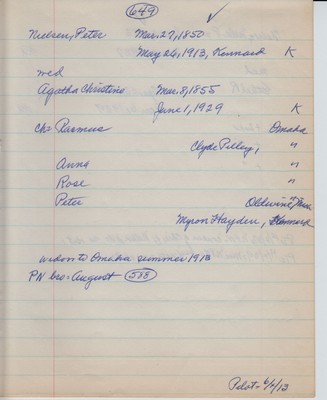 649
Nielsen, Peter Mar. 27, 1850
May 26, 1913, Kennard K
wed
Agatha Christine Mar. 8, 1855
June 1, 1929 K
Ch: Rasmus Omaha
Clyde Pilley, "
Anna "
Rose "
Peter
Myron Hayden, Kennard
widow to Omaha summer 1913
PN bro = August 588
Pilot = 6/5/13